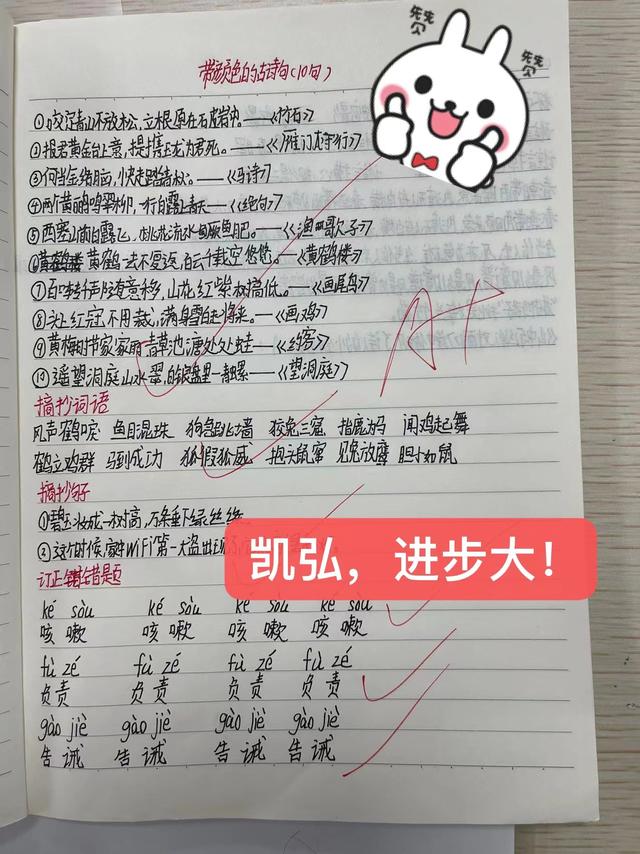 带颜色的古诗句(10句)
①咬定青山不放松,立根原在石岩中。——《竹石》
②报君黄金台上意,提携玉龙为君死。——《雁门太守行》
③何当金络脑,快走踏清秋。——《马诗》
④两个黄鹂鸣翠柳,一行白鹭上青天——《绝句》
⑤西塞山前白鹭飞,桃花流水鳜鱼肥。——《渔歌子》
⑥黄鹤一去不复返,白云千载空悠悠。——《黄鹤楼》
⑦百啭千声随意移,山花红紫树高低。——《画眉鸟》
⑧头上红冠不用裁,满身雪白走将来。——《画鸡》
⑨黄梅时节家家雨,青草池塘处处蛙——《约客》
⑩遥望洞庭山水翠,白银盘里一青螺——《望洞庭》
摘抄词语
风声鹤唳 鱼目混珠 狗急跳墙 狡兔三窟 指鹿为马 闻鸡起舞
鹤立鸡群 马到成功 狐假狐威 抱头鼠窜 见兔放鹰 胆小如鼠
摘抄句子
①碧玉妆成一树高,万条垂下绿丝绦。
②这个时候,家中WiFi第一大盗出现
订正错题
ké sòu ké sòu ké sòu ké sòu
咳嗽 咳嗽 咳嗽 咳嗽
fù zé fù zé fù zé fù zé
负责 负责 负责 负责
gào jiè gào jiè gào jiè gào jiè
告诫 告诫 告诫 告诫
A+
凯弘,进步大!